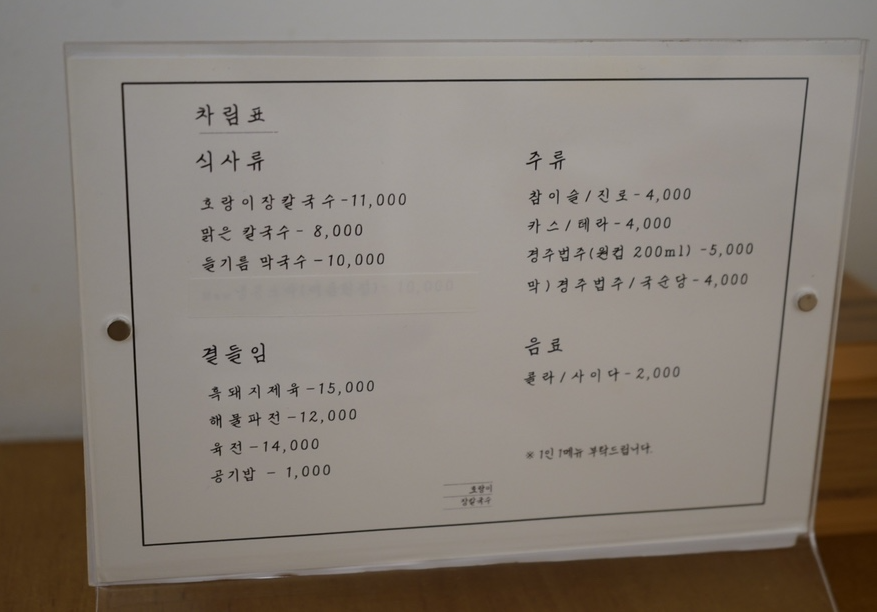 차림표
식사류
호랑이장칼국수-11,000
맑은 칼국수- 8,000
들기름 막국수-10,000
곁들임
흑돼지제육-15,000
해물파전-12,000
육전-14,000
공기밥 - 1,000
주류
참이슬/진로-4,000
카스/테라-4,000
경주법주(원컵 200ml) -5,000
막)경주법주/국순당-4,000
음료
콜라/사이다-2,000
※ 1인 1메뉴 부탁드립니다.
호랑이
장칼국수